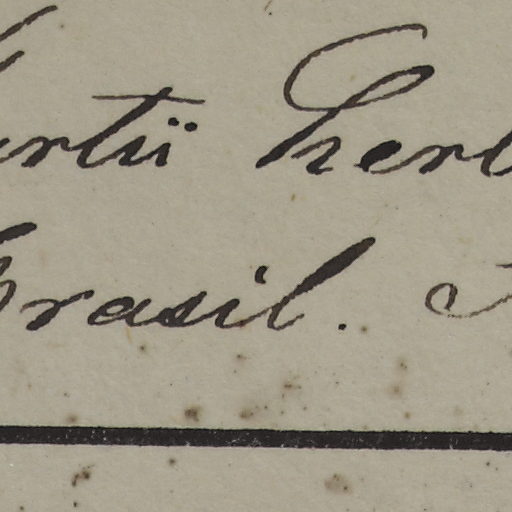 artii herb
Brasil.